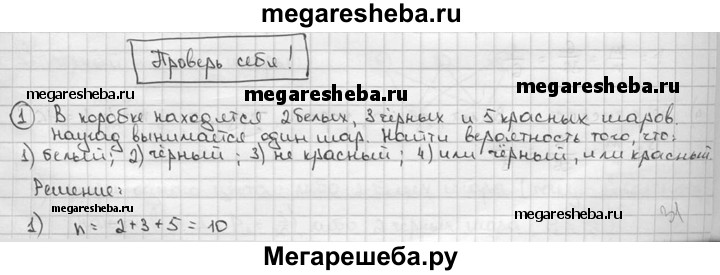 megaresheba.ru
Проверь себя!
megaresheba.ru
megaresheba.ru
1 В коробке находятся 2 белых, 3 чёрных и 5 красных шаров.
Наугад вынимается один шар. Найти вероятность того, что:
1) белый; 2) чёрный; 3) не красный; 4) или чёрный, или красный
Решение:
megaresheba.ru
megaresheba.ru
1) n = 2+3+5 = 10
Мегарешеба.ру